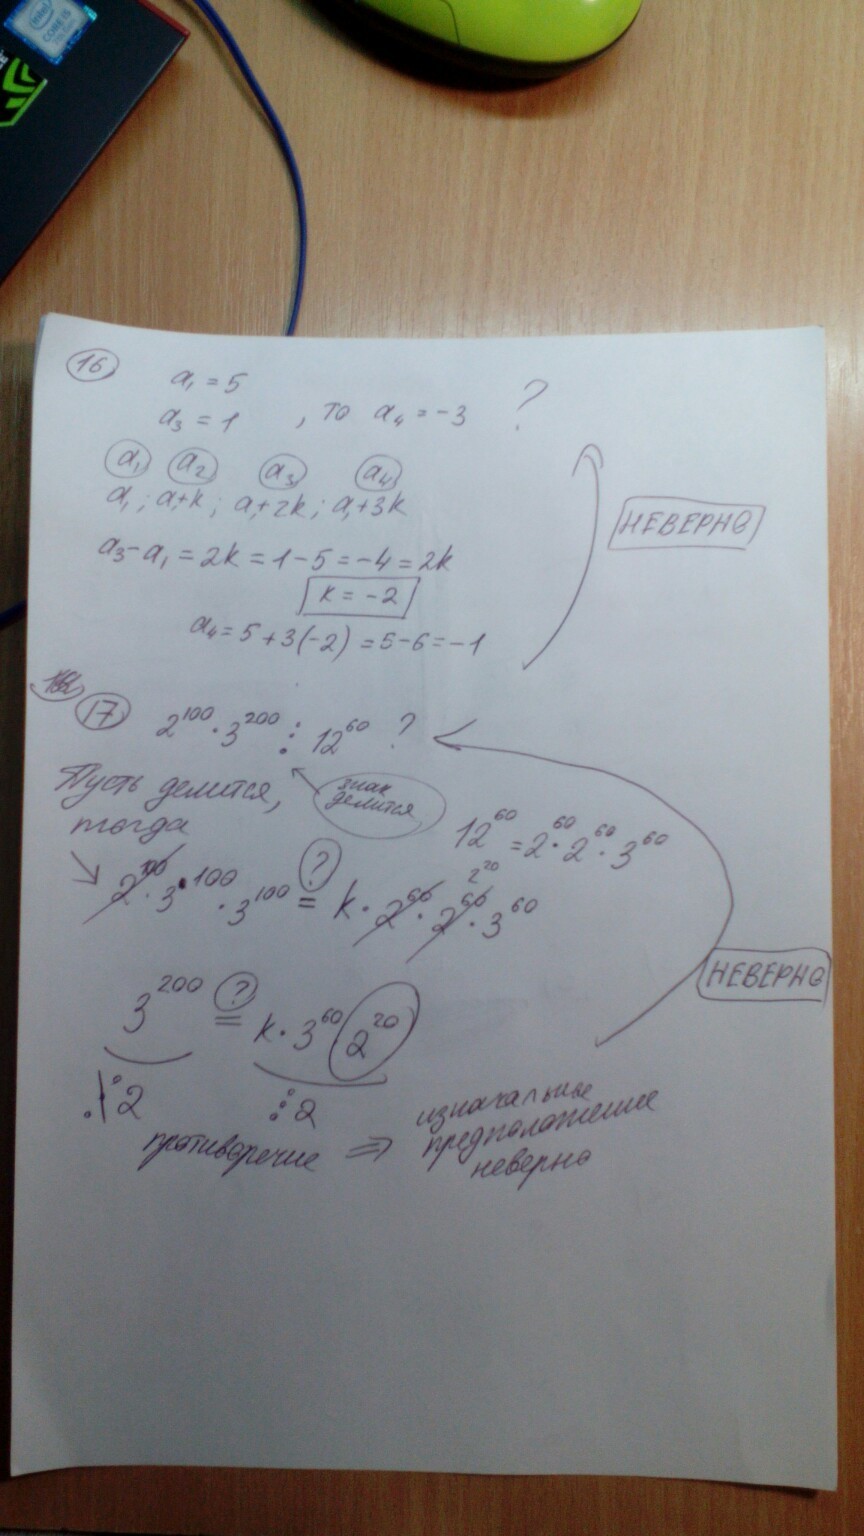 intel
CORE i5
16
a₁ = 5
a₃ = 1 , то a₄ = -3 ?
a₁ a₂ a₃ a₄
a₁ ; a₁+k ; a₁+2k ; a₁+3k
НЕВЕРНО
a₃-a₁ = 2k = 1-5 = -4 = 2k
k = -2
a₄ = 5+3(-2) = 5-6 = -1
17
2¹⁰⁰ · 3²⁰⁰ ⋮ 12⁶⁰ ?
Пусть делится,
знак
делится
тогда
12⁶⁰ = 2⁶⁰ · 2⁶⁰ · 3⁶⁰
2²⁰
2¹⁰⁰ · 3¹⁰⁰ · 3¹⁰⁰ = k · 2⁶⁰ · 2⁶⁰ · 3⁶⁰
?
НЕВЕРНО
3²⁰⁰ = k · 3⁶⁰ 2²⁰
?
⋮ 2 ⋮ 2
противоречие ⇒ изначальные
предположение
неверно